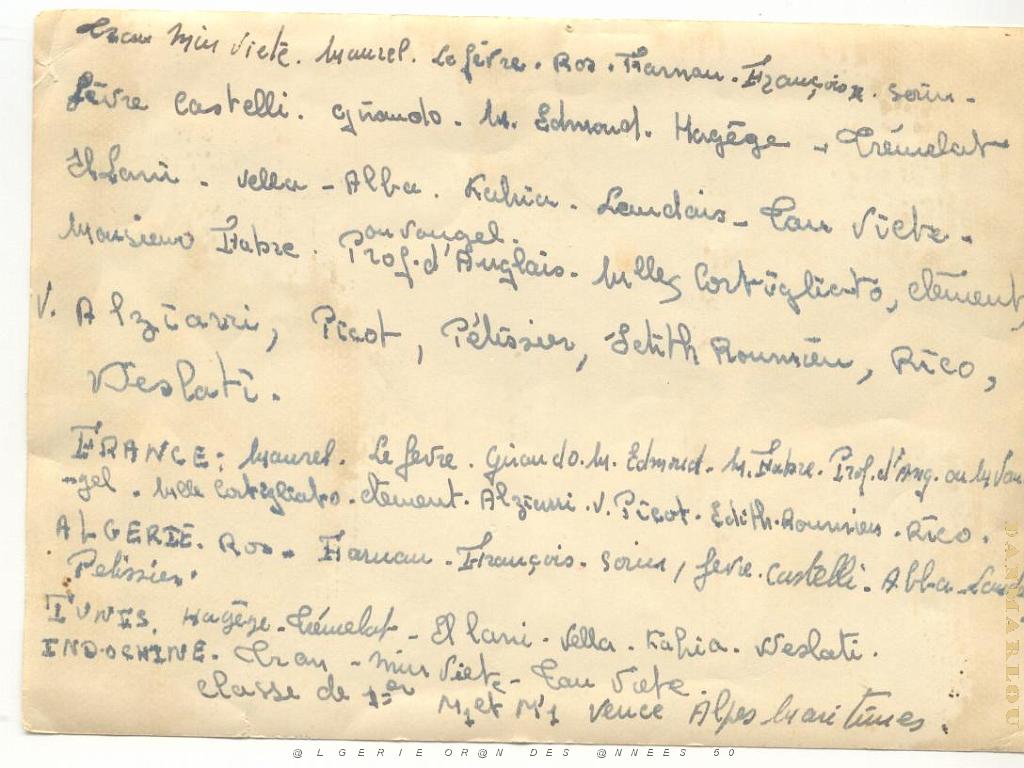 Tran Min Viete. Maurel. Lefèvre. Ros. Farnau. François. Sorin-
fèvre Castelli. Giraudo. M. Edmond. Hagège - Trémelat
El Lani - Vella - Alba. Kahia. Landais - Tau Viete.
ou Vangel.
Monsieur Fabre. Prof. d'Anglais. Mlles Cortigliato, Clément,
V. Alziarri, Picot, Pélissier, Edith Roumieu, Rico,
Weslati.
FRANCE: Maurel. Lefevre. Giraudo. M. Edmond. M. Fabre. Prof. d'Ang. ou M Van
-gel. Mlle Cortigliato. Clement. Alziarri. V. Picot. Edith. Roumieu. Rico.
ALGERIE. Ros. Farnau. François. Sorin, fevre. Castelli. Abba.
Pelissier.
TUNIS. Hagège. Trémelat - El Lani - Vella. Kahia. Weslati.
INDOCHINE. Tran - Min Viete - Tau Viete.
Classe de 1er M1 et M'1 Vence Alpes Maritimes.
DANMARLOU
@LGERIE OR@N DES @NNEES 50